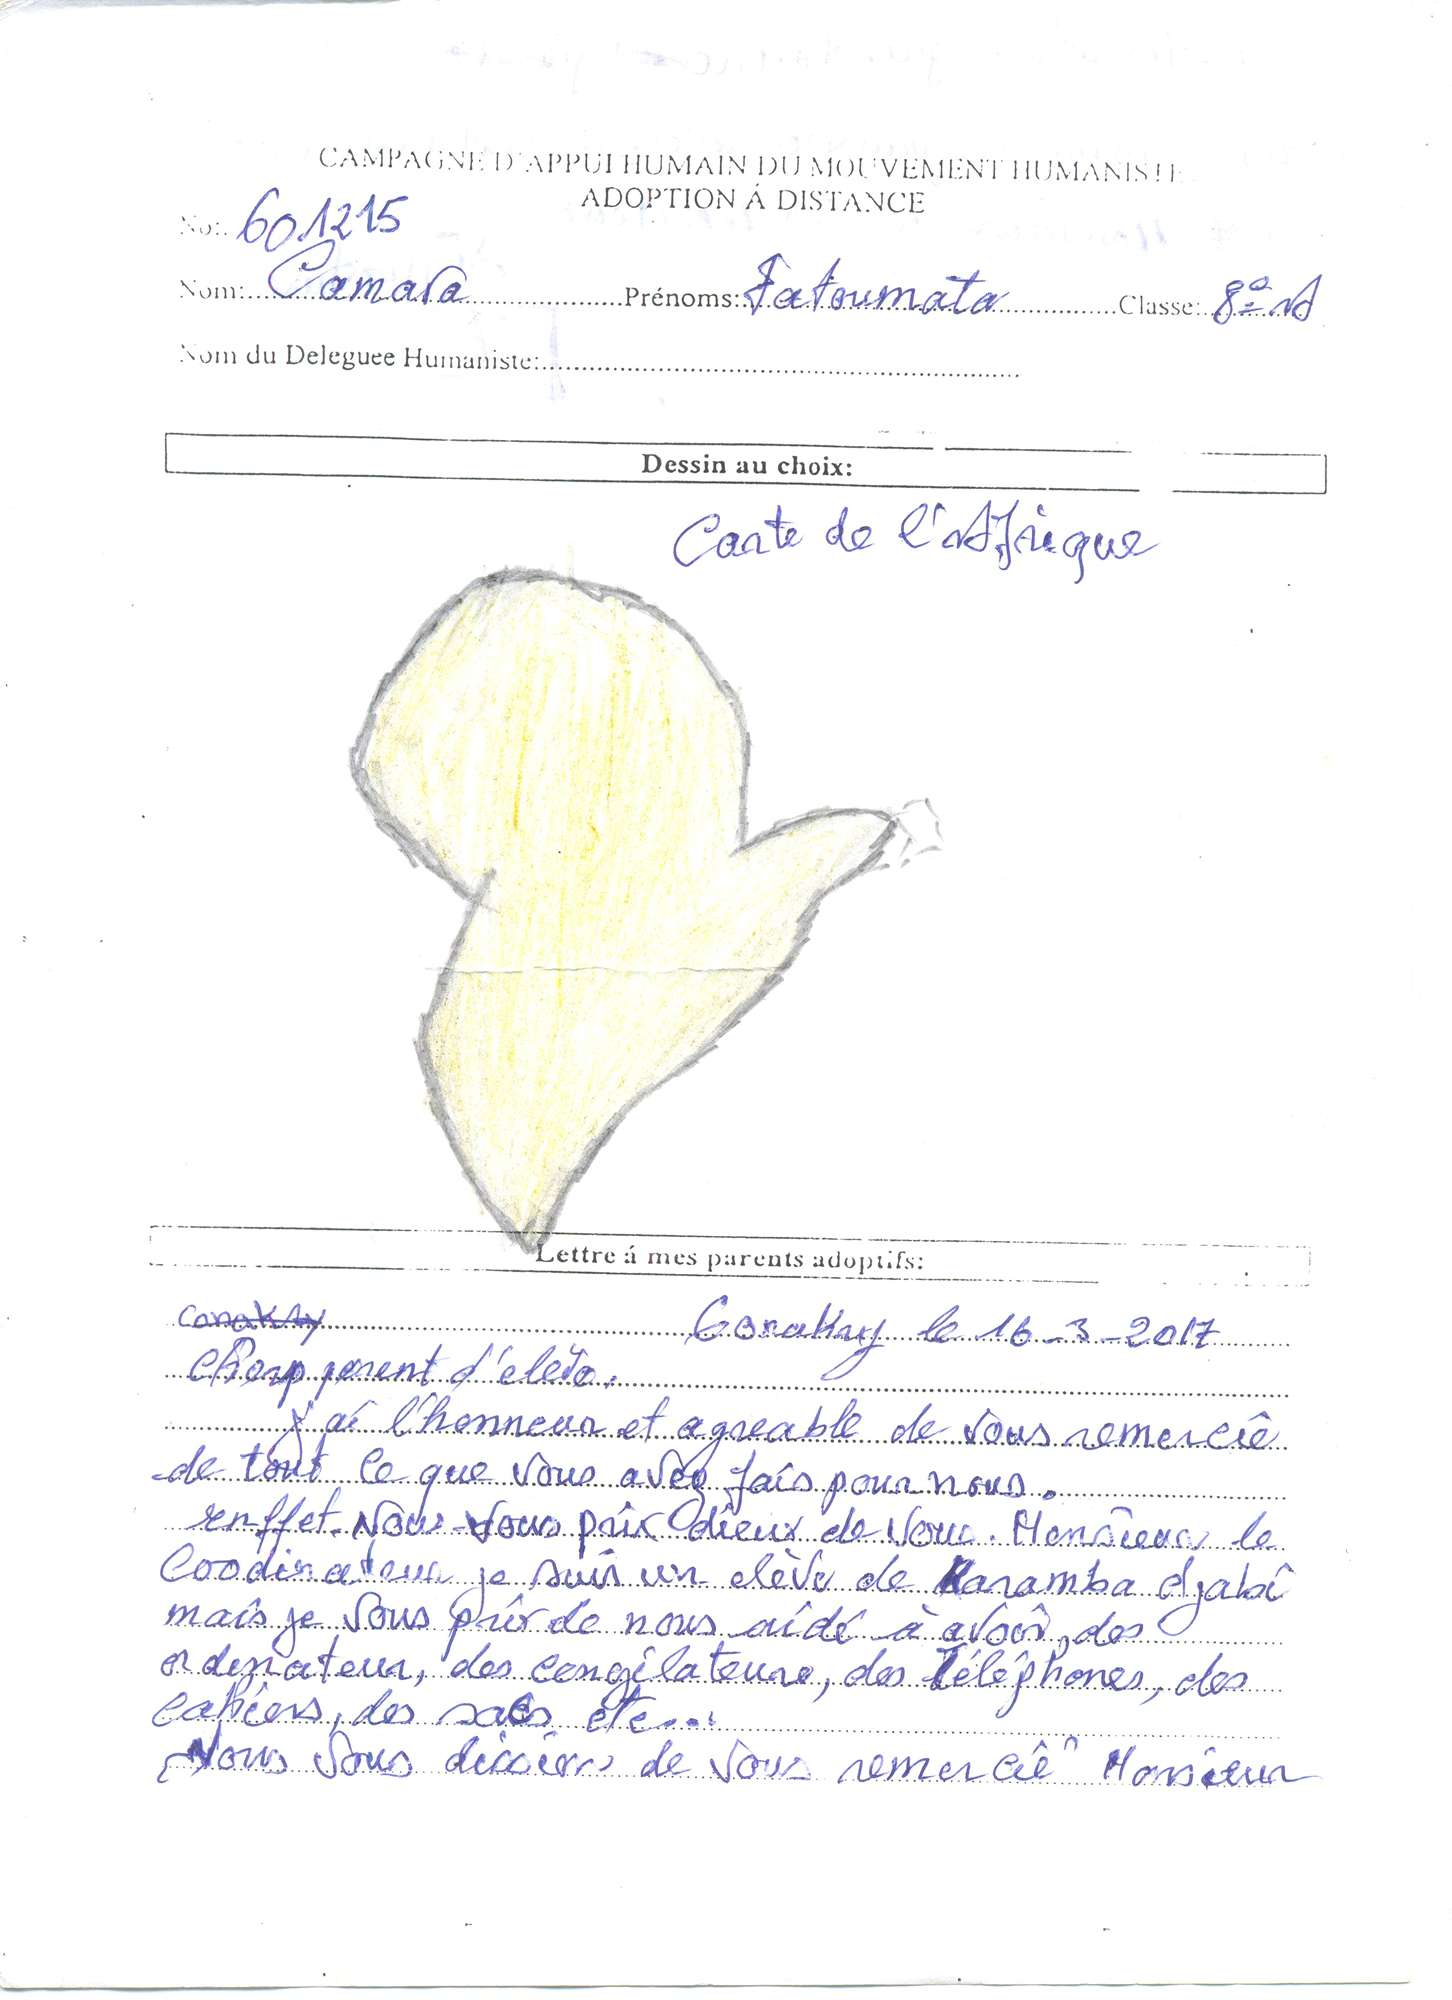 CAMPAGNE D'APPUI HUMAIN DU MOUVEMENT HUMANISTE
ADOPTION Á DISTANCE
No: 601215
Nom: Camara Prénoms: Fatoumata Classe: 8è A
Nom du Deleguee Humaniste:
Dessin au choix:
Carte de l'Afrique
Lettre á mes parents adoptifs:
conakry Conakry le 16-3-2017
parent d'elevo.
j'ai l'honneur et agreable de vous remerciê
de tout ce que vous avez fais pour nous.
enffet. Nous vous prix dieux de vous. Monsieur le
Coodinateur je suis un elève de Karamba djabi
mais je vous prix de nous aidé à avoir, des
ordinateur, des congilateurs, des Téléphones, des
cahiers, des sacs etc...
Nous vous de vous remerciê Monsieur